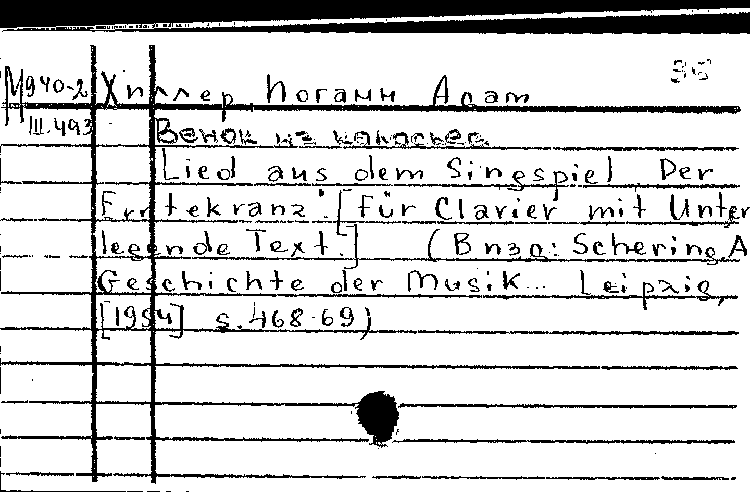 М940-2 Хиллер, Иоганн Адам 36
III.493 Венок из колосьев
Lied aus dem Singspiel Der
Erntekranz". [für Clavier mit Unter
legende Text.] (В изд: Schering, A
Geschichte der Musik... Leipzig,
[1954] s. 468-69)